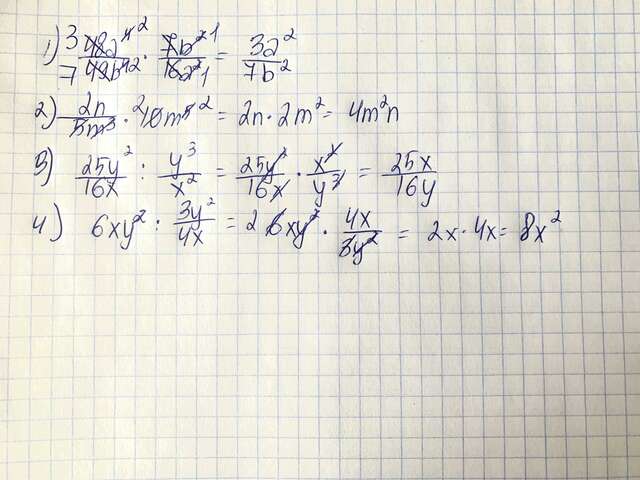 1) 3 48a⁴ ² / 7 49b⁴ ² · 7b² ¹ / 16a² ¹ = 3a² / 7b²
2) 2n / 5m³ · ² 10m⁵ ² = 2n · 2m² = 4m²n
3) 25y² / 16x : y³ / x² = 25y² / 16x · x² / y³ = 25x / 16y
4) 6xy² : 3y² / 4x = 2 6xy² · 4x / 3y² = 2x · 4x = 8x²